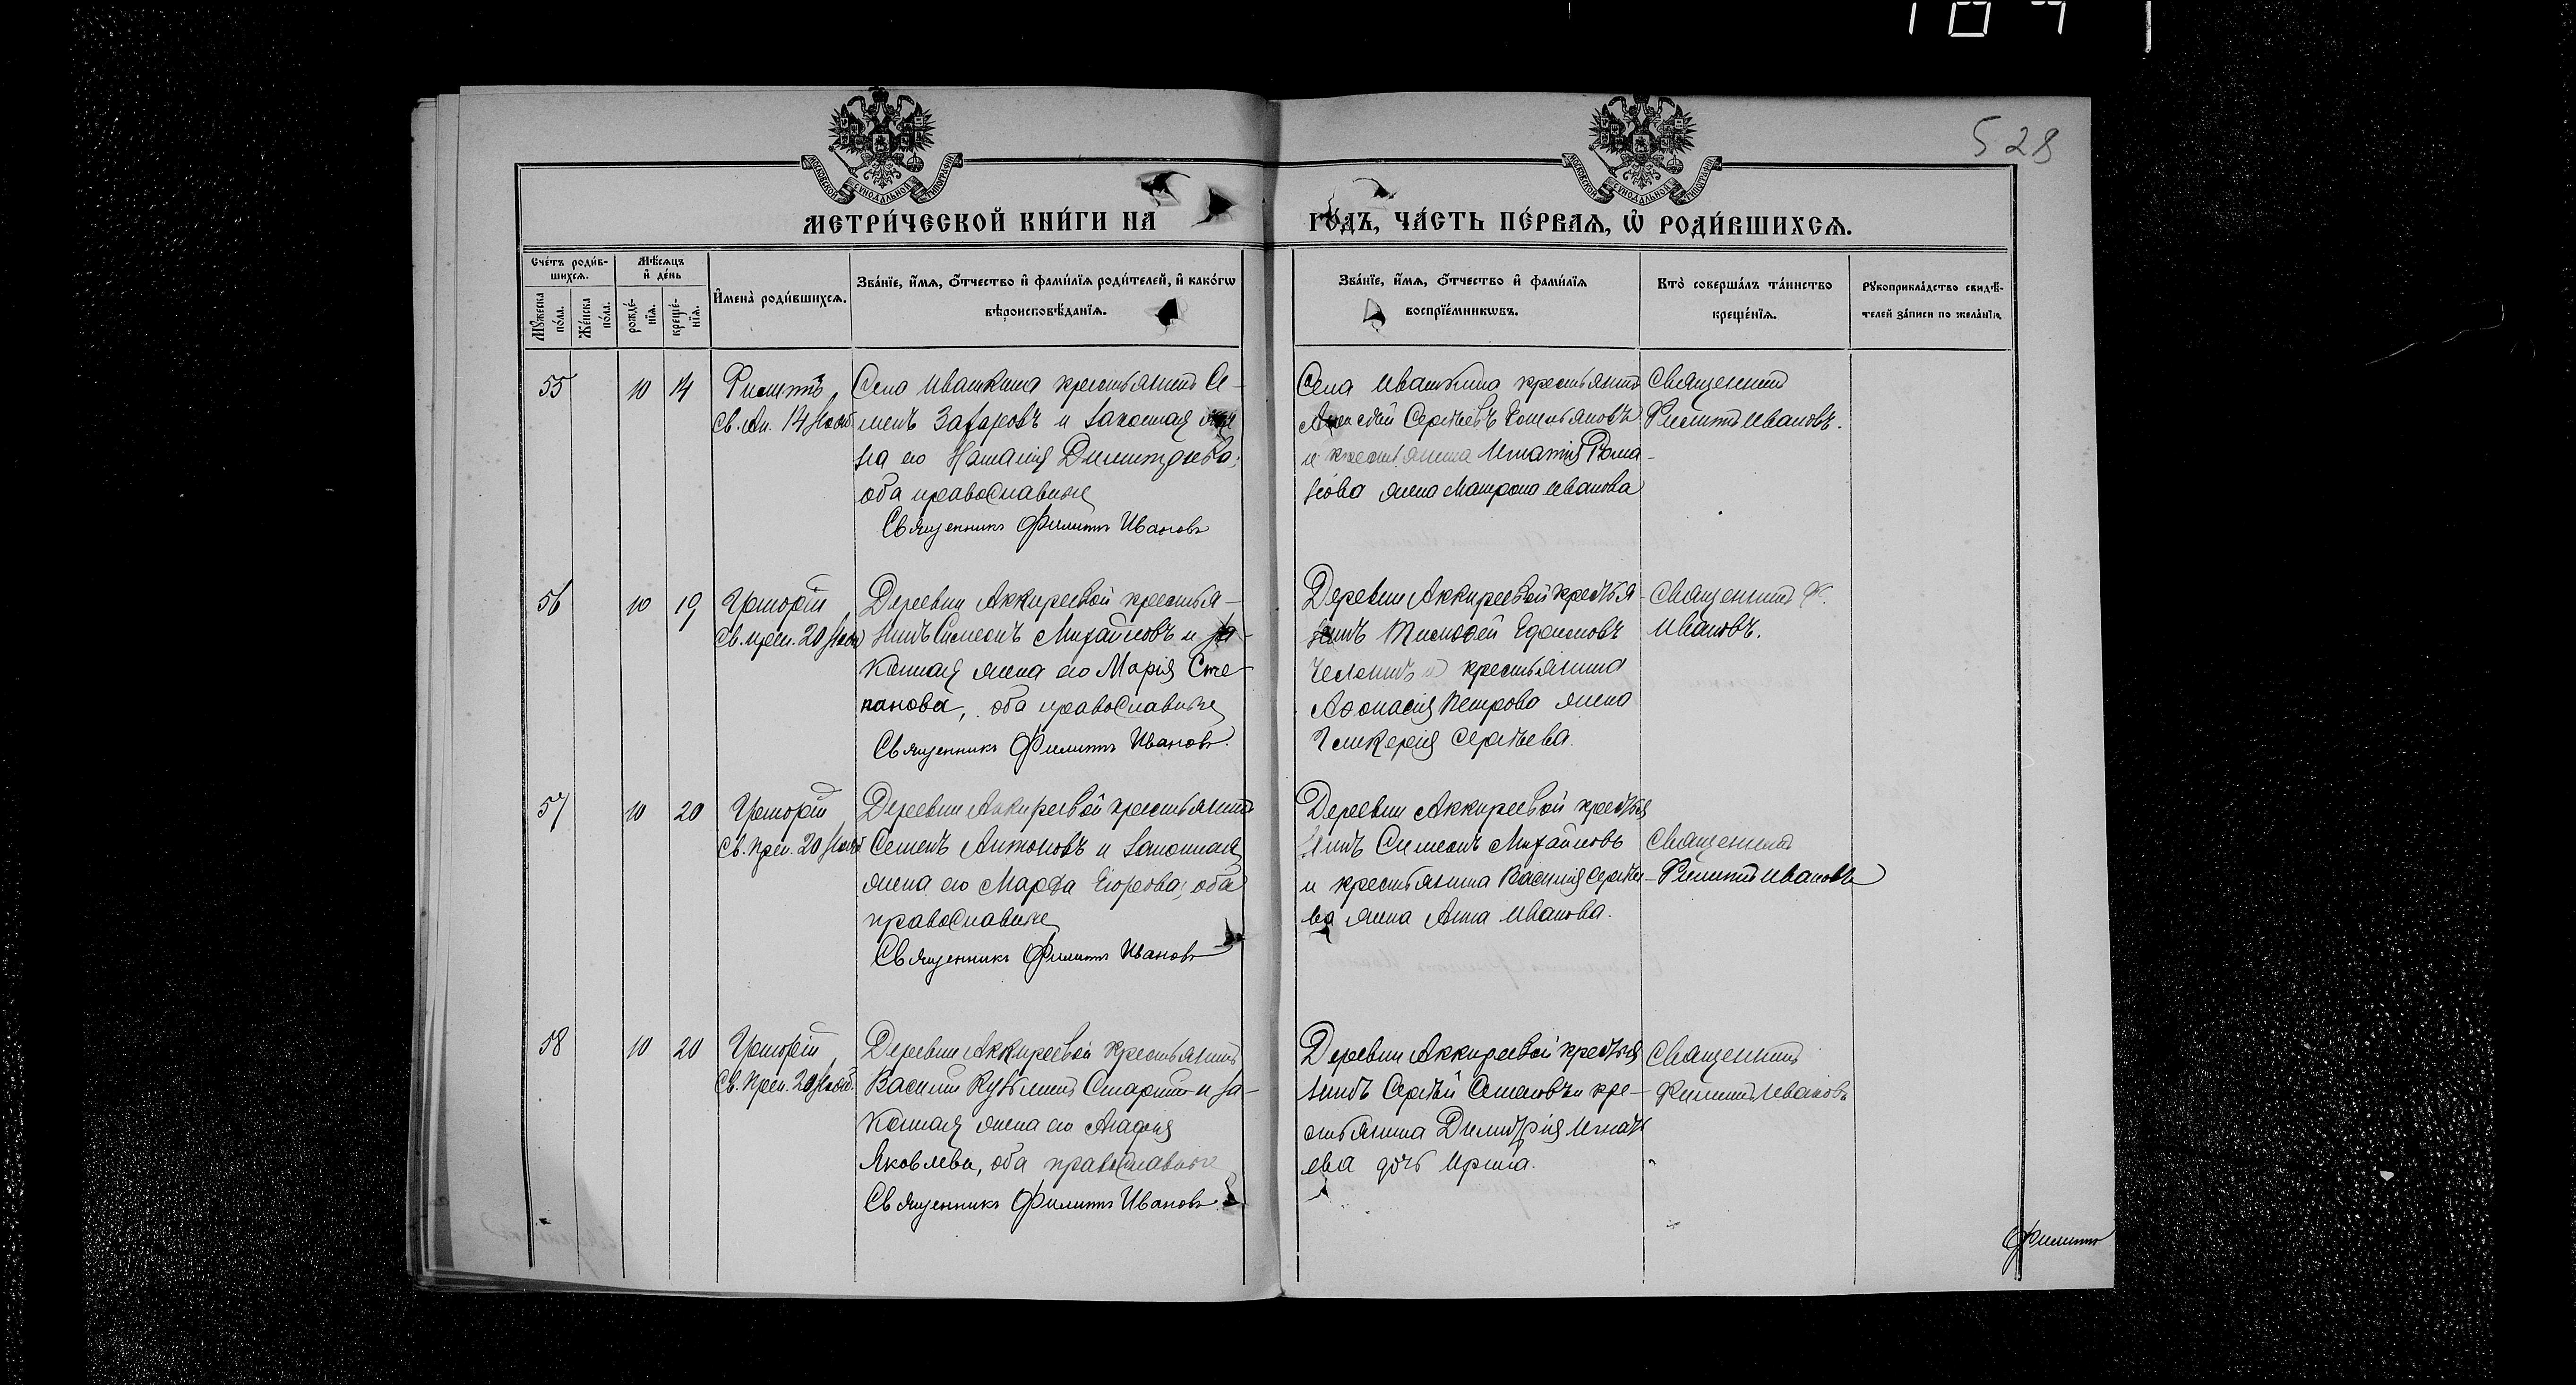 528
МЕТРИ́ЧЕСКОЙ КНИ́ГИ НА ГО́ДЪ, ЧА́СТЬ ПЕ́РВАѦ, Ѡ҆ РОДИ́ВШИХСѦ.
Сче́тъ роди́в-
шихсѧ.
Мѣ́сѧцъ
и҆ де́нь
Мꙋ́жеска
по́ла.
Же́нска
по́ла.
рожде́-
нїѧ.
креще́-
нїѧ.
И҆мена̀ роди́вшихсѧ.
Зва́нїе, и҆́мѧ, ѻ҆́тчество и҆ фами́лїѧ роди́телей, и҆ како́гѡ
вѣроисповѣ́данїѧ.
Зва́нїе, и҆́мѧ, ѻ҆́тчество и҆ фами́лїѧ
воспрїе́мникѡвъ.
Кто̀ соверша́лъ та́инство
креще́нїѧ.
Рꙋкоприкла́дство свидѣ́-
телей за́писи по жела́нїю.
55 10 14
Филиппъ
Св. Ап. 14 Нояб
Села Ивашкина крестьянинъ Се-
менъ Захаровъ и законная же
на его Наталія Димитріева,
оба православные
Священникъ Филиппъ Ивановъ
Села Ивашкина крестьянинъ
Алексѣй Сергѣевъ Емельяновъ
и крестьянина Игнатія Рома-
нова жена Матрона Иванова
Священникъ
Филиппъ Ивановъ.
56 10 19
Григорій
Св. преп. 20 Нояб
Деревни Аккиреевой крестья-
нинъ Симеонъ Михайловъ и за-
конная жена его Марія Сте-
панова, оба православные
Священникъ Филиппъ Ивановъ.
Деревни Аккиреевой крестья-
нинъ Тимофей
и крестьянина
Афанасія Петрова жена
Гликерія Сергѣева.
Священникъ Ф.
Ивановъ.
57 10 20
Григорій
Св. Преп. 20 Нояб
Деревни Аккиреевой крестьянинъ
Семенъ Антоновъ и законная
жена его Марфа Егорова, оба
православные
Священникъ Филиппъ Ивановъ
Деревни Аккиреевой крестья
нинъ Симеонъ Михайловъ
и крестьянина Василія Сергѣе-
ва жена Анна Иванова.
Священникъ
Филиппъ Ивановъ
58 10 20
Григорій
Св. Преп. 20 Нояб.
Деревни Аккиреевой крестьянинъ
Василій Кузьминъ Старшій и за-
конная жена его Агафія
Яковлева, оба православные
Священникъ Филиппъ Ивановъ.
Деревни Аккиреевой крестья
нинъ Сергѣй Семеновъ и кре-
стьянина Димитрія Игнать
ева дочь Ирина.
Священникъ
Филиппъ Ивановъ
Филиппъ